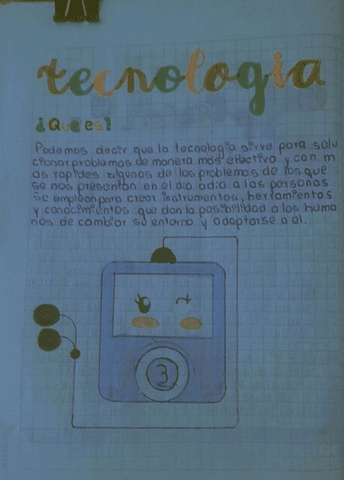 tecnologia
¿Que es?
Podemos decir que la tecnologia sirve para solu
cionar problemas de manera mas efectiva y con m
as rapides algunos de los problemas de los que
se nos presentan en el dia adia a las personas
Se emplean para crear instrumentos, herramientas
y conocimientos que dan la posibilidad a los huma
nos de cambiar su entorno y adaptarse a el.
3